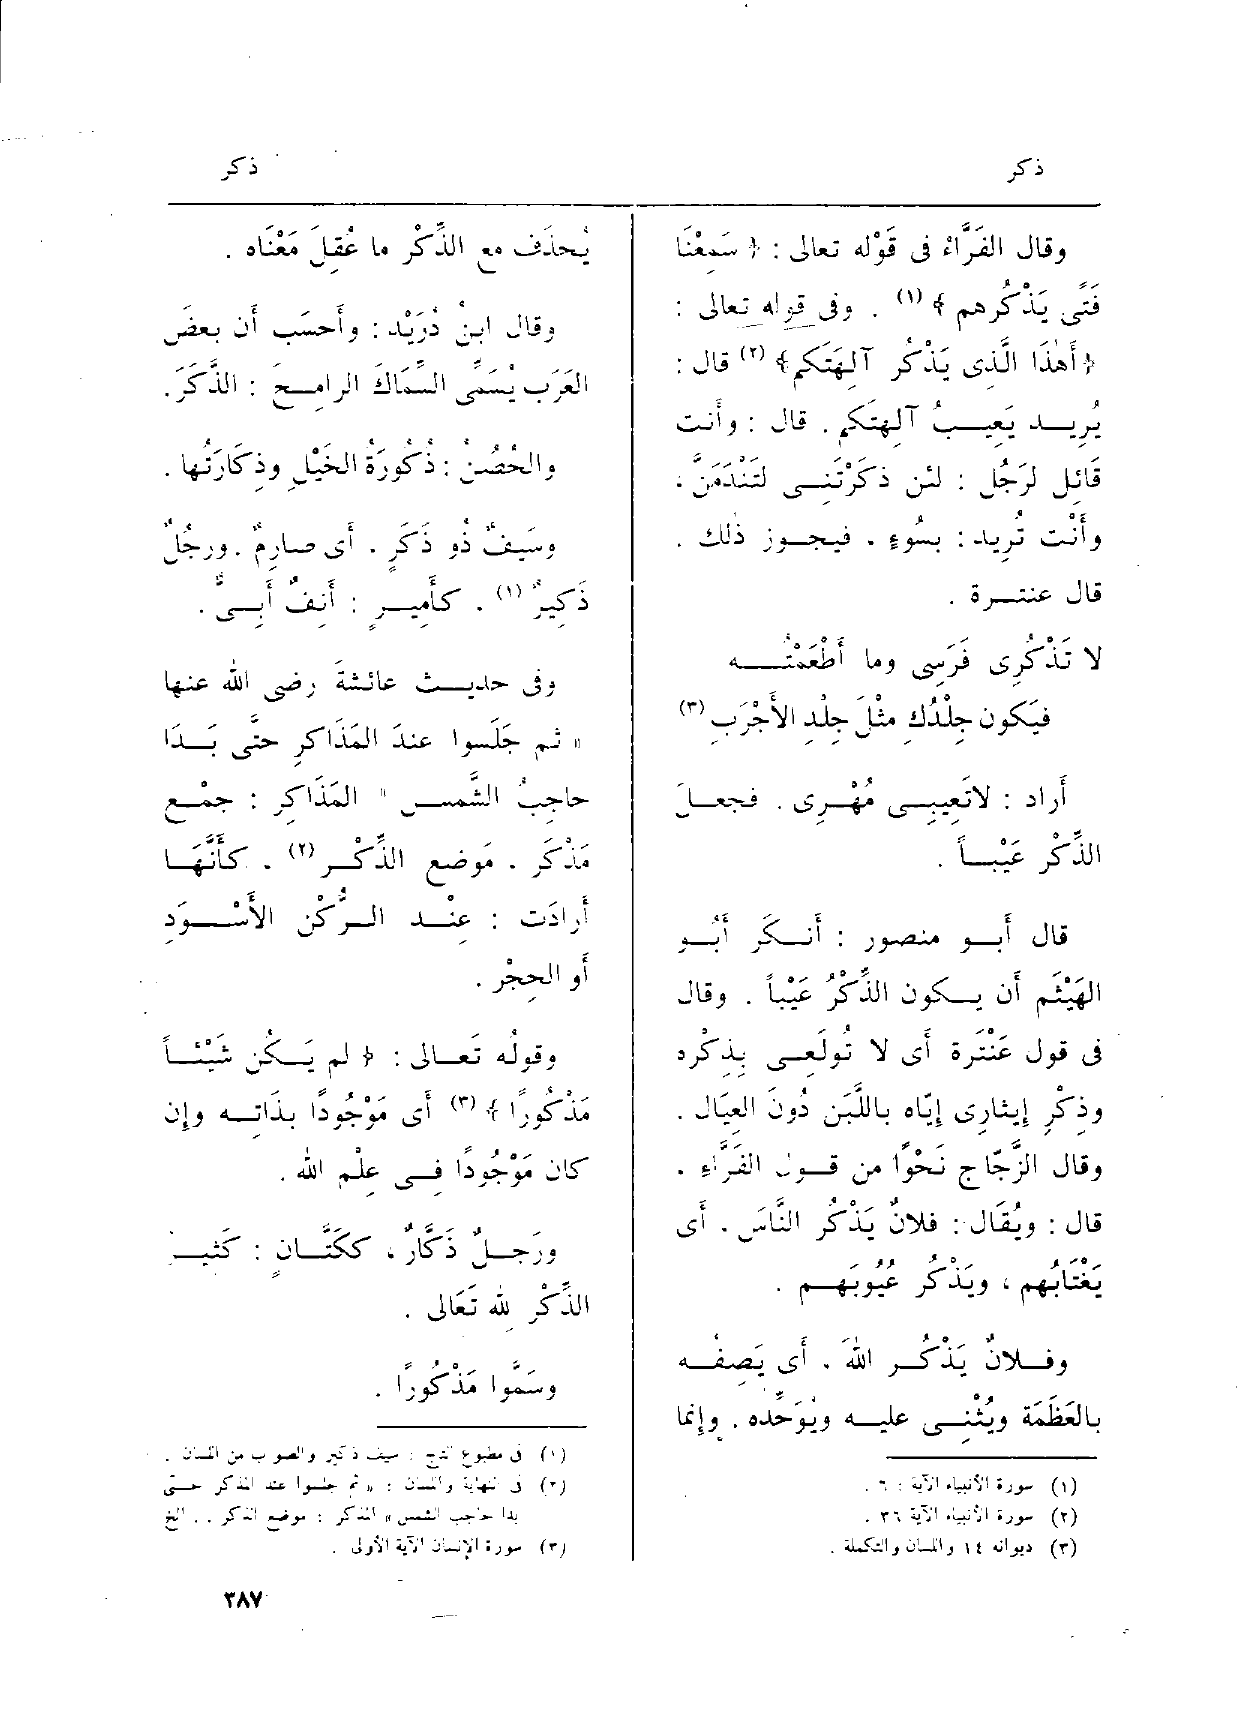 ذكر
ذكر
وقال الفَرَّاءُ فى قَوْله تعالى : ﴿ سَمِعْنَا
فَتًى يَذْكُرهم ﴾ (١) . وفى قوله تعالى :
﴿ أَهٰذَا الَّذى يَذْكُر آلِهَتَكم ﴾ (٢) قال :
يُريد يَعِيبُ آلِهتَكم . قال : وأَنت
قَائل لرَجُل : لئن ذَكَرْتَنِى لتَنْدَمَنَّ ،
وأَنْت تُريد : بسُوءٍ ، فيجوز ذلك .
قال عنترة .
لا تَذْكُرِى فَرَسِى وما أَطْعَمْتُه
فيَكون جِلْدُك مثْلَ جِلْدِ الأَجْرَبِ (٣)
أَراد : لاتَعِيبِى مُهْرِى . فجعلَ
الذِّكْر عَيْبًا .
قال أَبو منصور : أَنكَر أَبُو
الهَيْثَم أَن يكون الذِّكْرُ عَيْبًا . وقال
فى قول عَنْتَرة أَى لا تُولَعِى بِذِكْرِه
وذِكْرِ إِيثارِى إِيّاه باللَّبَن دُونَ العِيَال .
وقال الزَّجّاج نَحْوًا من قول الفَرَّاءِ .
قال : ويُقَال : فلانٌ يَذْكُر النَّاسَ . أَى
يَغْتَابُهم ، ويَذْكُر عُيُوبَهم .
وفلانٌ يَذْكُر اللهَ . أَى يَصِفُه
بالعَظَمَة ويُثْنِى عليه ويُوَحِّدُه . وإِنما
(١) سورة الأنبياء الآية : ٦٠ .
(٢) سورة الأنبياء الآية ٣٦ .
(٣) ديوانه ١٤ واللسان والتكملة .
يُحذَف مع الذِّكْر ما عُقِلَ مَعْنَاه .
وقال ابنُ دُرَيْد : وأَحسَب أَن بعضَ
العَرَب يُسَمِّى السِّمَاكَ الرامِحَ : الذَّكَرَ .
والحُصُنُ : ذُكُورَةُ الخَيْلِ وذِكَارَتُها .
وسَيفٌ ذو ذُكَرٍ ، أَى صارِمٌ . ورجُلٌ
ذَكِيرٌ (١) . كأَمِيرٍ : أَنِفٌ أَبِىٌّ .
وفى حديث عائشةَ رضى الله عنها
« ثم جَلَسوا عندَ المَذَاكِر حتَّى بَدَا
حاجِبُ الشَّمس » المَذَاكِر : جمْع
مَذْكَر . مَوْضع الذِّكْر (٢) . كأَنَّهَا
أَرادَت : عِنْد الرُّكْن الأَسْوَدِ
أَو الحِجْر .
وقولُه تَعالى : ﴿ لم يَكُن شَيْئاً
مَذْكُورًا ﴾ (٣) أَى مَوْجُودًا بذاتِه وإن
كان مَوْجُودًا فِى عِلْم الله .
ورَجلٌ ذَكَّارٌ ، ككَتَّانٍ : كثِير
الذِّكْر لله تَعَالى .
وسَمَّوا مَذْكُورًا .
(١) فى مطبوع التاج : سيف ذكير والصوب من اللسان .
(٢) فى النهاية واللسان : « ثم جلسوا عند المذكر حتى
بدا حاجب الشمس » المذكر : موضع الذكر . . الخ
(٣) سورة الإنسان الآية الأولى .
٣٨٧